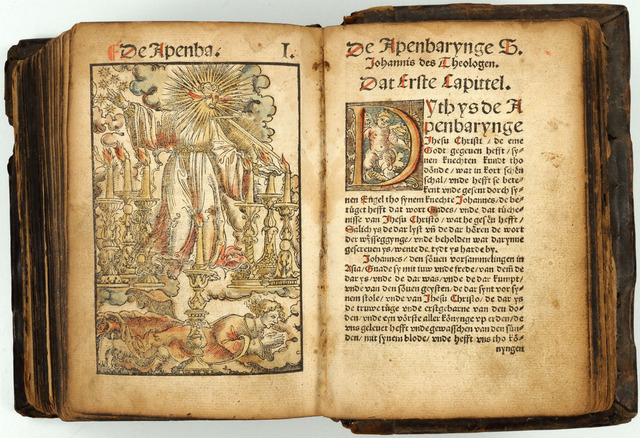 De Apenba. I.
De Apenbarynge S.
Johannis des Theologen.
Dat Erste Capittel.
Dyth ys de A
penbarynge
Jhesu Christi / de eme
Godt gegeuen hefft / sy-
nen knechten kundt tho
dönde / wat in kort schën
schal / vnde hefft se bete-
kent vnde gesent dorch sy-
nen Engel tho synem knechte Johannes / de be-
tüget hefft dat wort Gades / vnde dat tüche-
nisse van Jhesu Christo / wat he gesën hefft /
Salich ys de dar lyst vñ de dar hören de wort
der wysseggynge / vnde beholden wat darynne
gescreuen ys / wente de tydt ys harde by.
Johannes / den söuen vorsammelingen in
Asia / Gnade sy mit iuw vnde frede / van dem de
dar ys / vnde de dar was / vnde de dar kumpt /
vnde van den söuen geysten / de dar synt vor sy-
nem stole / vnde van Jhesu Christo / de dar ys
de truwe tüge vnde erstgebarne van den do-
den / vnde eyn vörste aller könynge vp erden / de
vns geleuet hefft vnde gewasschen van den sün-
den / mit synem blode / vnde hefft vns tho kö-
nyngen